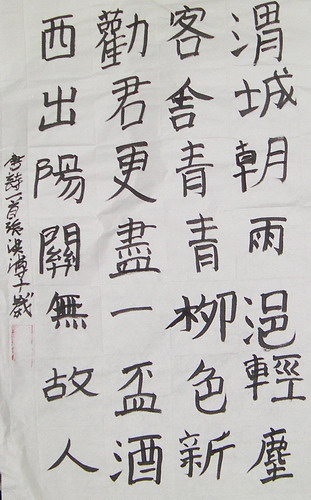 渭城朝雨浥輕塵
客舍青青柳色新
勸君更盡一盃酒
西出陽關無故人
詩一首張洪溥十歲